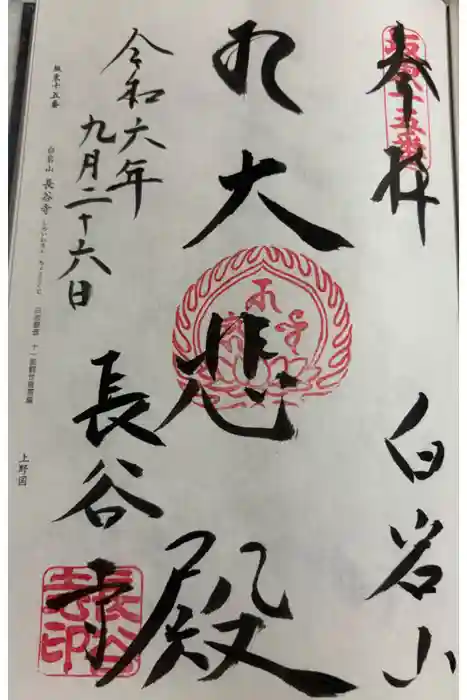 奉拝
坂東十五番
白岩山
大悲殿
長谷寺
令和六年
九月二十六日
坂東十五番
白岩山 長谷寺
上野国